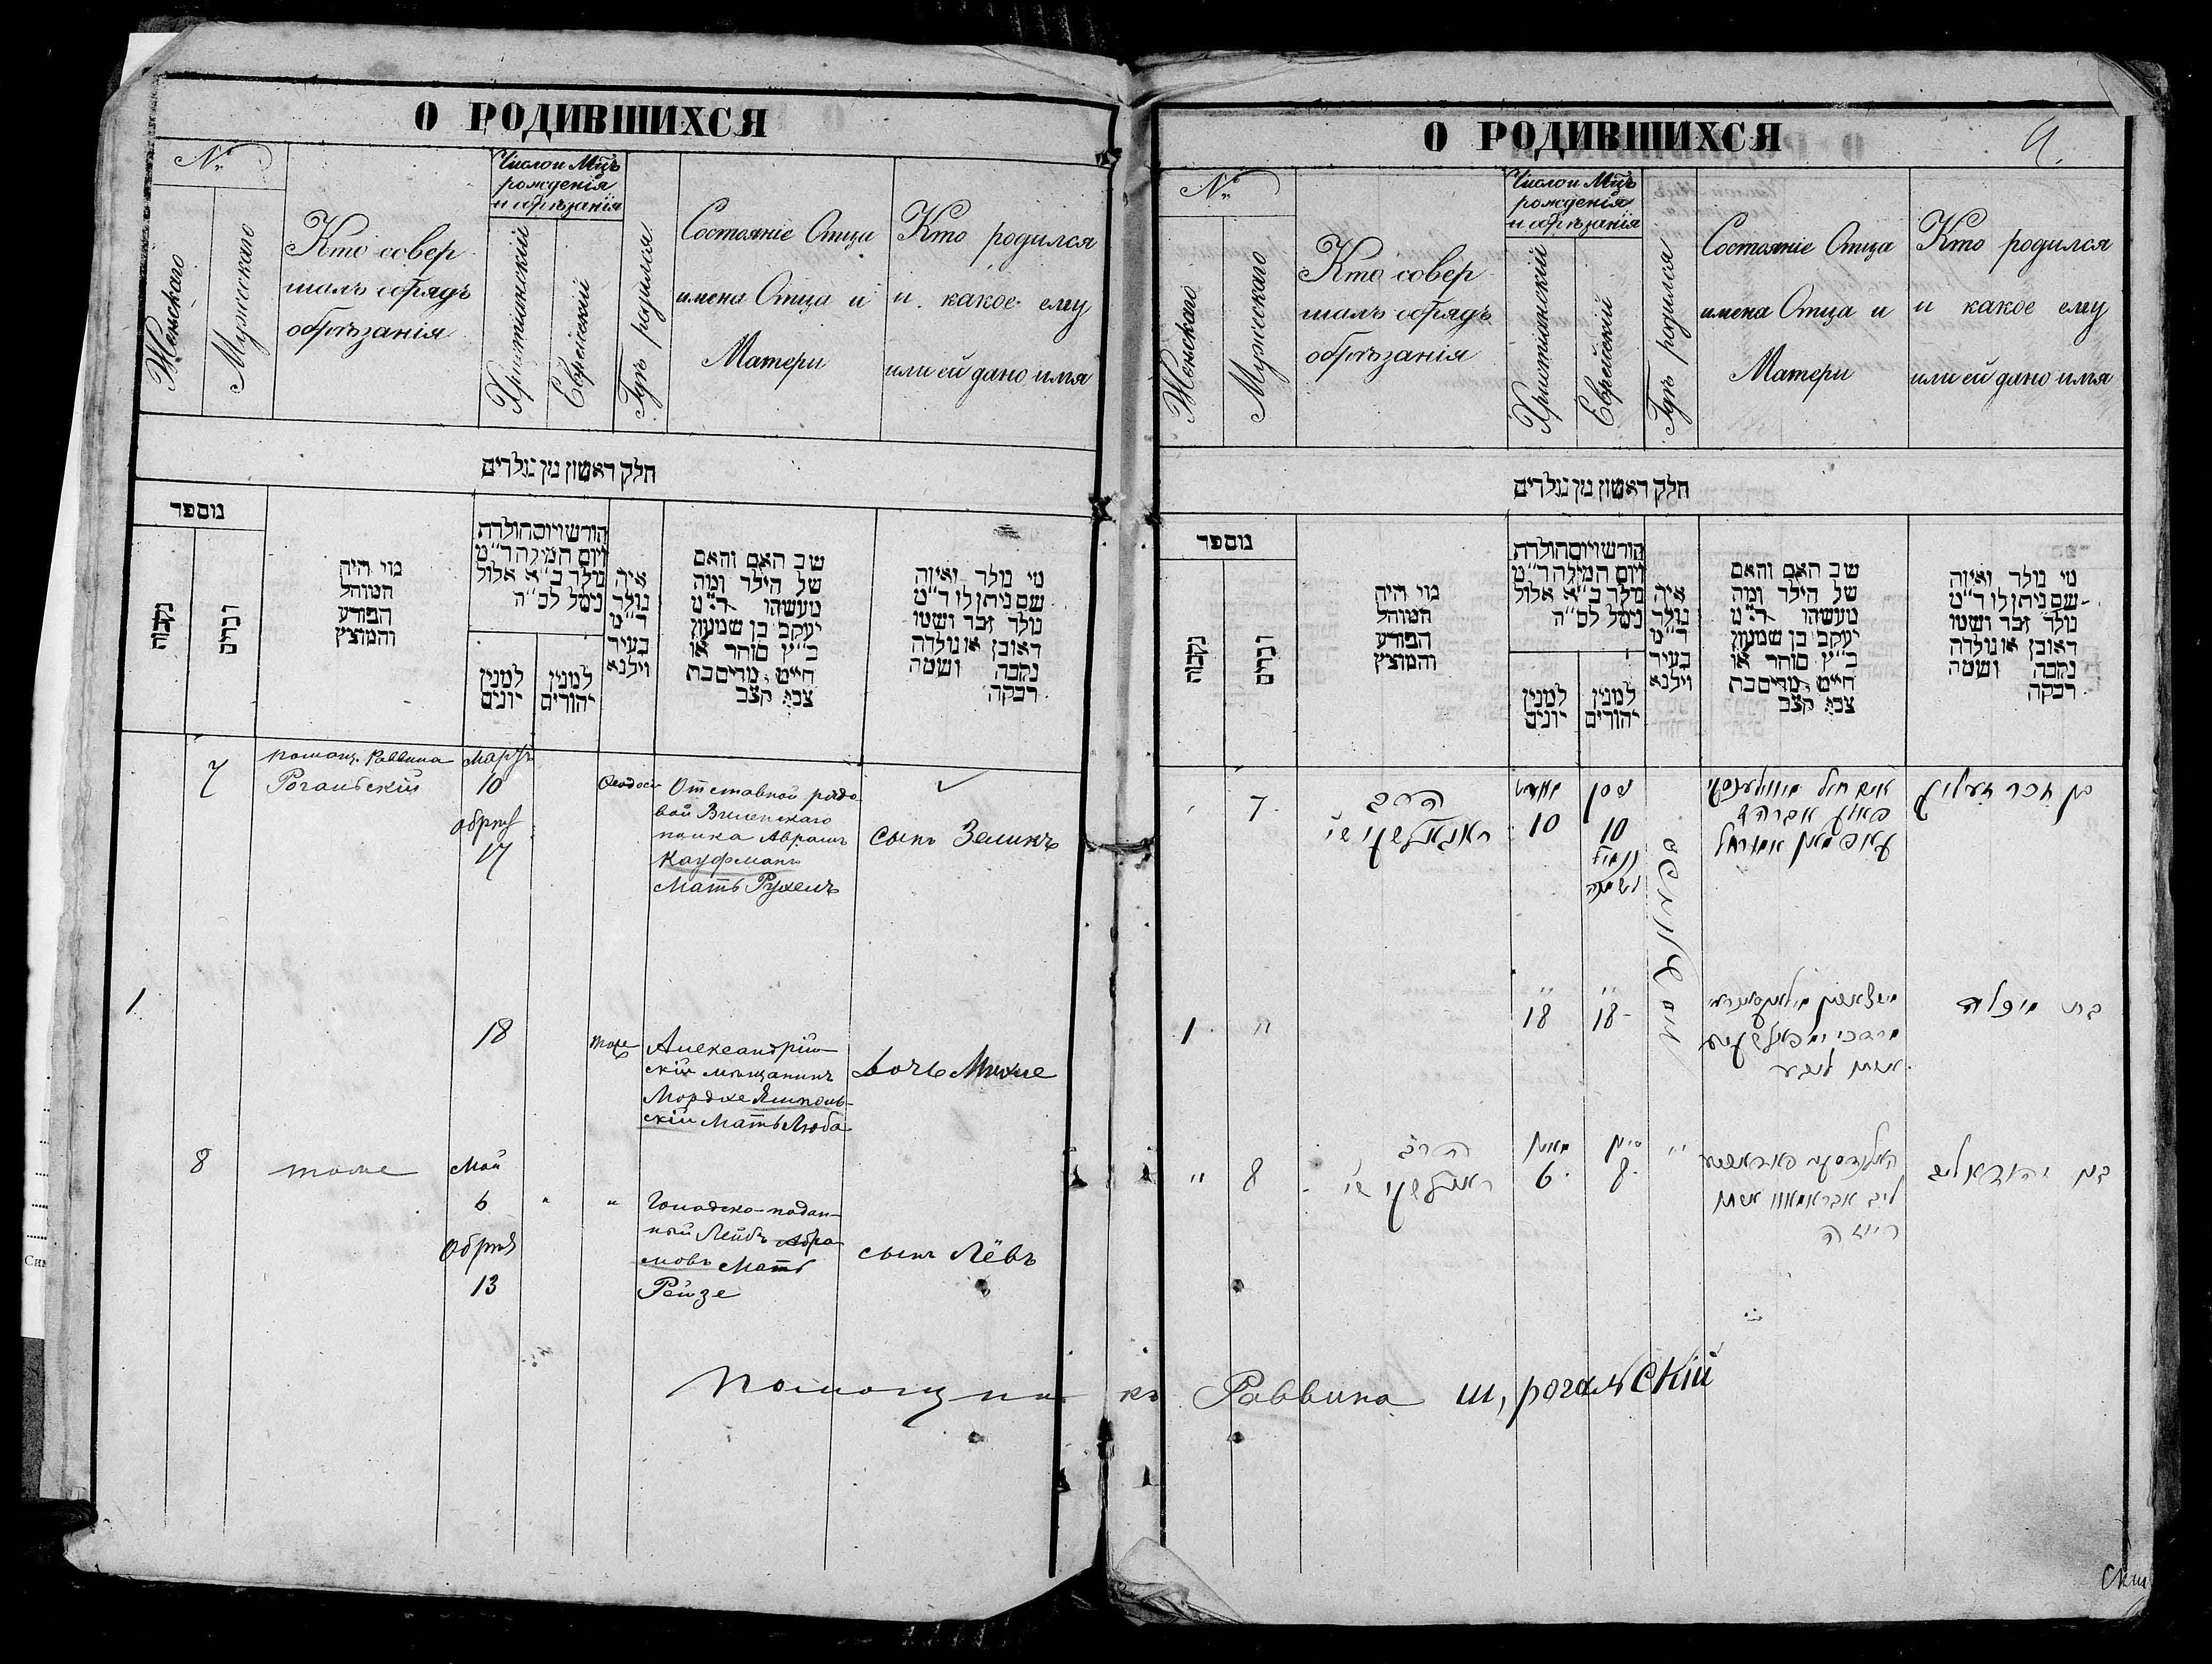 О РОДИВШИХСЯ
№
Женскаго
Мужескаго
Кто совер
шалъ обрядъ
обрѣзанія
Число и Мцъ
рожденія
и обрѣзанія
Христіанскій
Еврейскій
Гдѣ родился
Состояніе Отца
имена Отца и
Матери
Кто родился
и какое ему
или ей дано имя
חלק ראשון מן נולדים
מספר
נקבות
זכרים
מי היה
המוהל
הפורע
והמוצץ
חודש ויום הולדת
ויום המילה ד"מ
נולד ב"א אלול
נימל לס"ה
למנין
יונים
למנין
יהודים
איה
נולד
ד"מ
בעיר
וילנא
שב האם והאם
של הילד ומה
מעשהו ד"מ
יעקב בן שמעון
כ"ץ סוחר או
חייט, מרים בת
צבי קצב
מי נולד ואיזה
שם ניתן לו ד"מ
נולד זכר ושמו
ראובן או נולדה
נקבה ושמה
רבקה
7
помощ. Раввина
Рогальскій
Мартъ
10
обрѣз
17
Ѳеодосі
Отставной рядо
вой Виленскаго
полка Абрамъ
Кауфманъ
Мать Рухель
сынъ Зеликъ
1
18
тоже
Александрій
скій мѣщанинъ
Мордхе Ямполь-
скій Мать Люба
дочь Михле
8
тоже
Май
6
обрѣз
13
"
"
Голадско-подан-
ный Лейбъ Абра
мовъ Мать
Рейзе
сынъ Лёвъ
О РОДИВШИХСЯ
№
Женскаго
Мужескаго
Кто совер
шалъ обрядъ
обрѣзанія
Число и Мцъ
рожденія
и обрѣзанія
Христіанскій
Еврейскій
Гдѣ родился
Состояніе Отца
имена Отца и
Матери
Кто родился
и какое ему
или ей дано имя
חלק ראשון מן נולדים
מספר
נקבות
זכרים
מי היה
המוהל
הפורע
והמוצץ
חודש ויום הולדת
ויום המילה ד"מ
נולד ב"א אלול
נימל לס"ה
למנין
יונים
למנין
יהודים
איה
נולד
ד"מ
בעיר
וילנא
שב האם והאם
של הילד ומה
מעשהו ד"מ
יעקב בן שמעון
כ"ץ סוחר או
חייט, מרים בת
צבי קצב
מי נולד ואיזה
שם ניתן לו ד"מ
נולד זכר ושמו
ראובן או נולדה
נקבה ושמה
רבקה
7
הרב
10
ניסן
10
בן זכר זעליג
1
"
18
18
בת מיכלה
"
8
הרב
6
8
"
ליב אבראמאוו אשתו
רייזה
בן יהודא ליב
Помощникъ Раввина Ш, рогальСКій